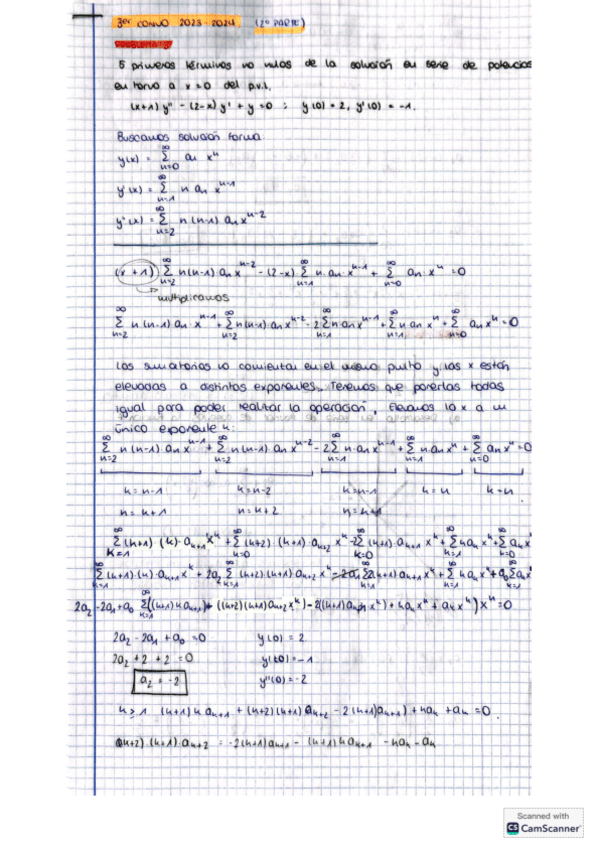 3er CONVO 2023-2024. (2ª PARTE)
PROBLEMA 3
5 primeros términos no nulos de la solución en serie de potencias
en torno a x=0 del p.v.i.
(x+1) y'' - (2-x) y' + y = 0 ; y(0) = 2, y'(0) = -1.
Buscamos solución forma
y(x) = ∑_{n=0}^{∞} an x^n
y'(x) = ∑_{n=1}^{∞} n an x^{n-1}
y''(x) = ∑_{n=2}^{∞} n (n-1) an x^{n-2}
(x+1) ∑_{n=2}^{∞} n(n-1) an x^{n-2} - (2-x) ∑_{n=1}^{∞} n·an·x^{n-1} + ∑_{n=0}^{∞} an·x^n = 0
multiplicamos
∑_{n=2}^{∞} n(n-1) an·x^{n-1} + ∑_{n=2}^{∞} n(n-1) an x^{n-2} - 2∑_{n=1}^{∞} n·an x^{n-1} + ∑_{n=1}^{∞} n an x^n + ∑_{n=0}^{∞} an x^n = 0
Los sumatorios no comienzan en el mismo punto y las x están
elevadas a distintos exponentes. Tenemos que ponerlas todas
igual para poder realizar la operación, Elevamos la x a un
único exponente k:
∑_{n=2}^{∞} n(n-1) an x^{n-1} + ∑_{n=2}^{∞} n(n-1) an x^{n-2} - 2∑_{n=1}^{∞} n·an x^{n-1} + ∑_{n=1}^{∞} n·an x^n + ∑_{n=0}^{∞} an x^n = 0
k=n-1 k=n-2 k=n-1 k=n k=n
n=k+1 n=k+2 n=k+1
∑_{k=1}^{∞} (k+1)(k)·a_{k+1} x^k + ∑_{k=0}^{∞} (k+2)·(k+1)·a_{k+2} x^k - 2∑_{k=0}^{∞} (k+1)·a_{k+1} x^k + ∑_{k=1}^{∞} k a_k x^k + ∑_{k=0}^{∞} a_k x^k
∑_{k=1}^{∞} (k+1)(k)·a_{k+1} x^k + 2a2 ∑_{k=1}^{∞} (k+2)(k+1) a_{k+2} x^k - 2a1 2∑(k+1) a_{k+1} x^k + ∑_{k=1}^{∞} k a_k x^k + a0 ∑ a_k x^k
2a2 - 2a1 + a0 ∑_{k=1}^{∞} ((k+1) k a_{k+1}) + ((k+2)(k+1) a_{k+2} x^k) - 2((k+1) a_{k+1} x^k) + k a_k x^k + a_k x^k) x^k = 0
2a2 - 2a1 + a0 = 0 y(0) = 2
2a2 + 2 + 2 = 0 y'(0) = -1
a2 = -2 y''(0) = -2
k≥1 (k+1) k a_{k+1} + (k+2)(k+1) a_{k+2} - 2(k+1) a_{k+1}) + k a_k + a_k = 0
(k+2)·(k+1)·a_{k+2} = -2(k+1) a_{k+1} - (k+1) k a_{k+1} - k a_k - a_k
Scanned with
CS CamScanner